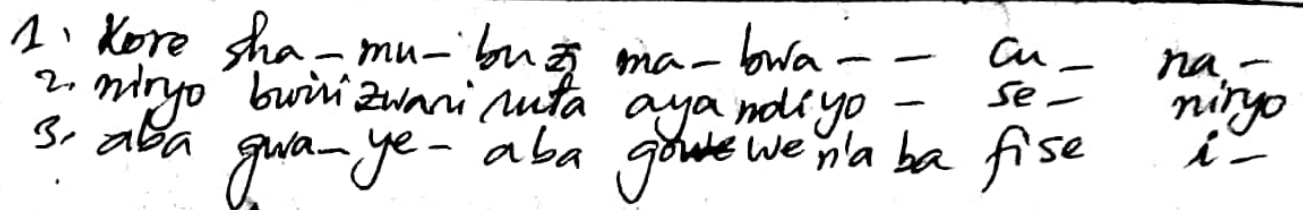 1. Kore sha-mu-buzi ma-bwa-- cu- na-
2. niryo bwirizwani ruta ayandiyo - se- niryo
3. aba gwa-ye- aba gowewe n'aba fise i-